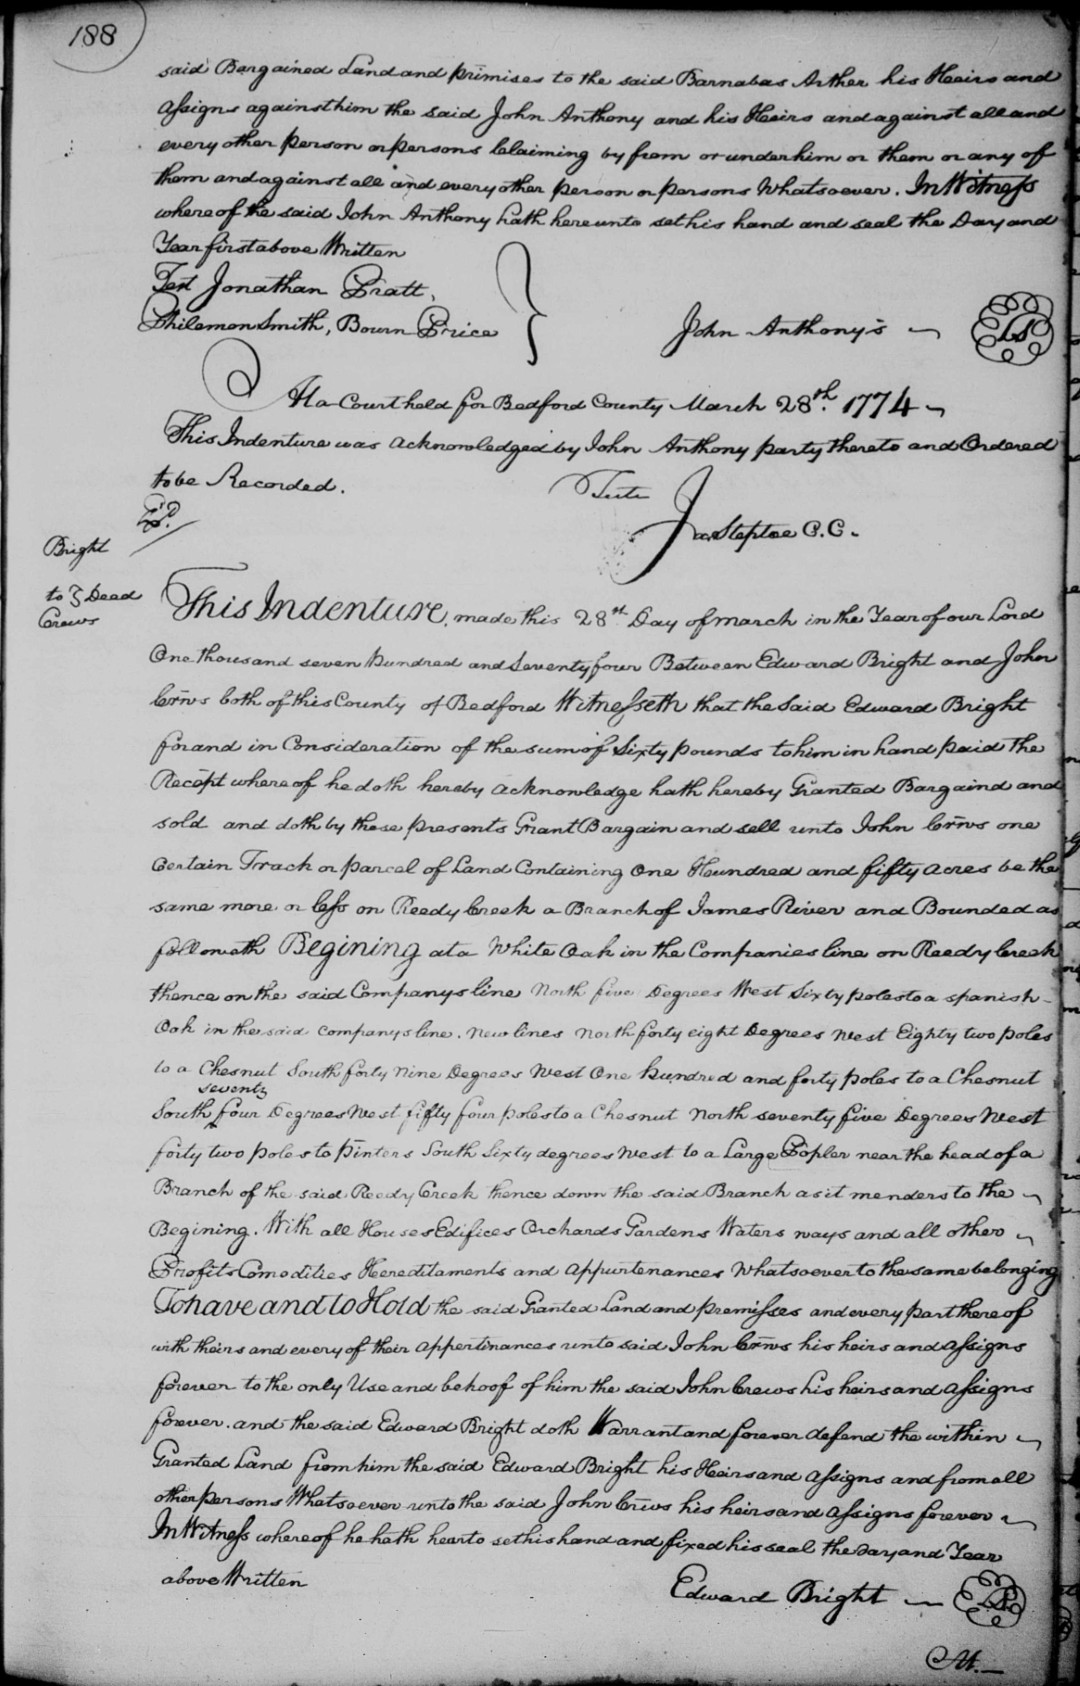 188
said Bargained Land and primises to the said Barnabas Arther his Heirs and
Assigns against him the said John Anthony and his Heirs and against all and
every other person or persons Claiming by from or under him or them or any of
them and against all and every other person or persons Whatsoever. In Witness
whereof the said John Anthony hath hereunto set his hand and seal the Day and
Year first above Written
Test Jonathan Pratt,
Philemon Smith, Bourn Price
John Anthony's
LS
At a Court held for Bedford County March 28th. 1774
This Indenture was acknowledged by John Anthony party thereto and Ordered
to be Recorded.
Teste
Jas Steptoe C.C.
Bright
to } Deed
Crews
This Indenture, made this 28th Day of March in the Year of our Lord
One thousand seven hundred and Seventy four Between Edward Bright and John
Crws both of this County of Bedford Witnesseth that the said Edward Bright
for and in Consideration of the sum of Sixty pounds to him in hand paid the
Recept whereof he doth hereby acknowledge hath hereby Granted Bargaind and
sold and doth by these presents Grant Bargain and sell unto John Crws one
Certain Track or parcel of Land Containing One Hundred and fifty acres be the
same more or less on Reedy Creek a Branch of James River and Bounded as
followeth Begining at a White Oak in the Companies line on Reedy Creek
thence on the said Companys line North five Degrees West Sixty poles to a spanish
Oak in the said companys line. New lines North forty eight Degrees West Eighty two poles
to a Chesnut South forty Nine Degrees West One hundred and forty poles to a Chesnut
seventy
South four Degrees West fifty four poles to a Chesnut North seventy five Degrees West
forty two poles to pinters South Sixty degrees West to a Large Popler near the head of a
Branch of the said Reedy Creek thence down the said Branch as it menders to the
Begining. With all Houses Edifices Orchards Gardens Waters ways and all other
Profits Comodities Hereditaments and appurtenances Whatsoever to the same belonging
To have and to Hold the said Granted Land and premisses and every part thereof
with theirs and every of their appertinances unto said John Crws his heirs and assigns
forever to the only Use and behoof of him the said John Crews his heirs and assigns
forever. and the said Edward Bright doth Warrant and forever defend the within
Granted Land from him the said Edward Bright his Heirs and assigns and from all
other persons Whatsoever unto the said John Crws his heirs and assigns forever
In Witness whereof he hath hearto set his hand and fixed his seal the day and Year
above Written
Edward Bright
LS
At